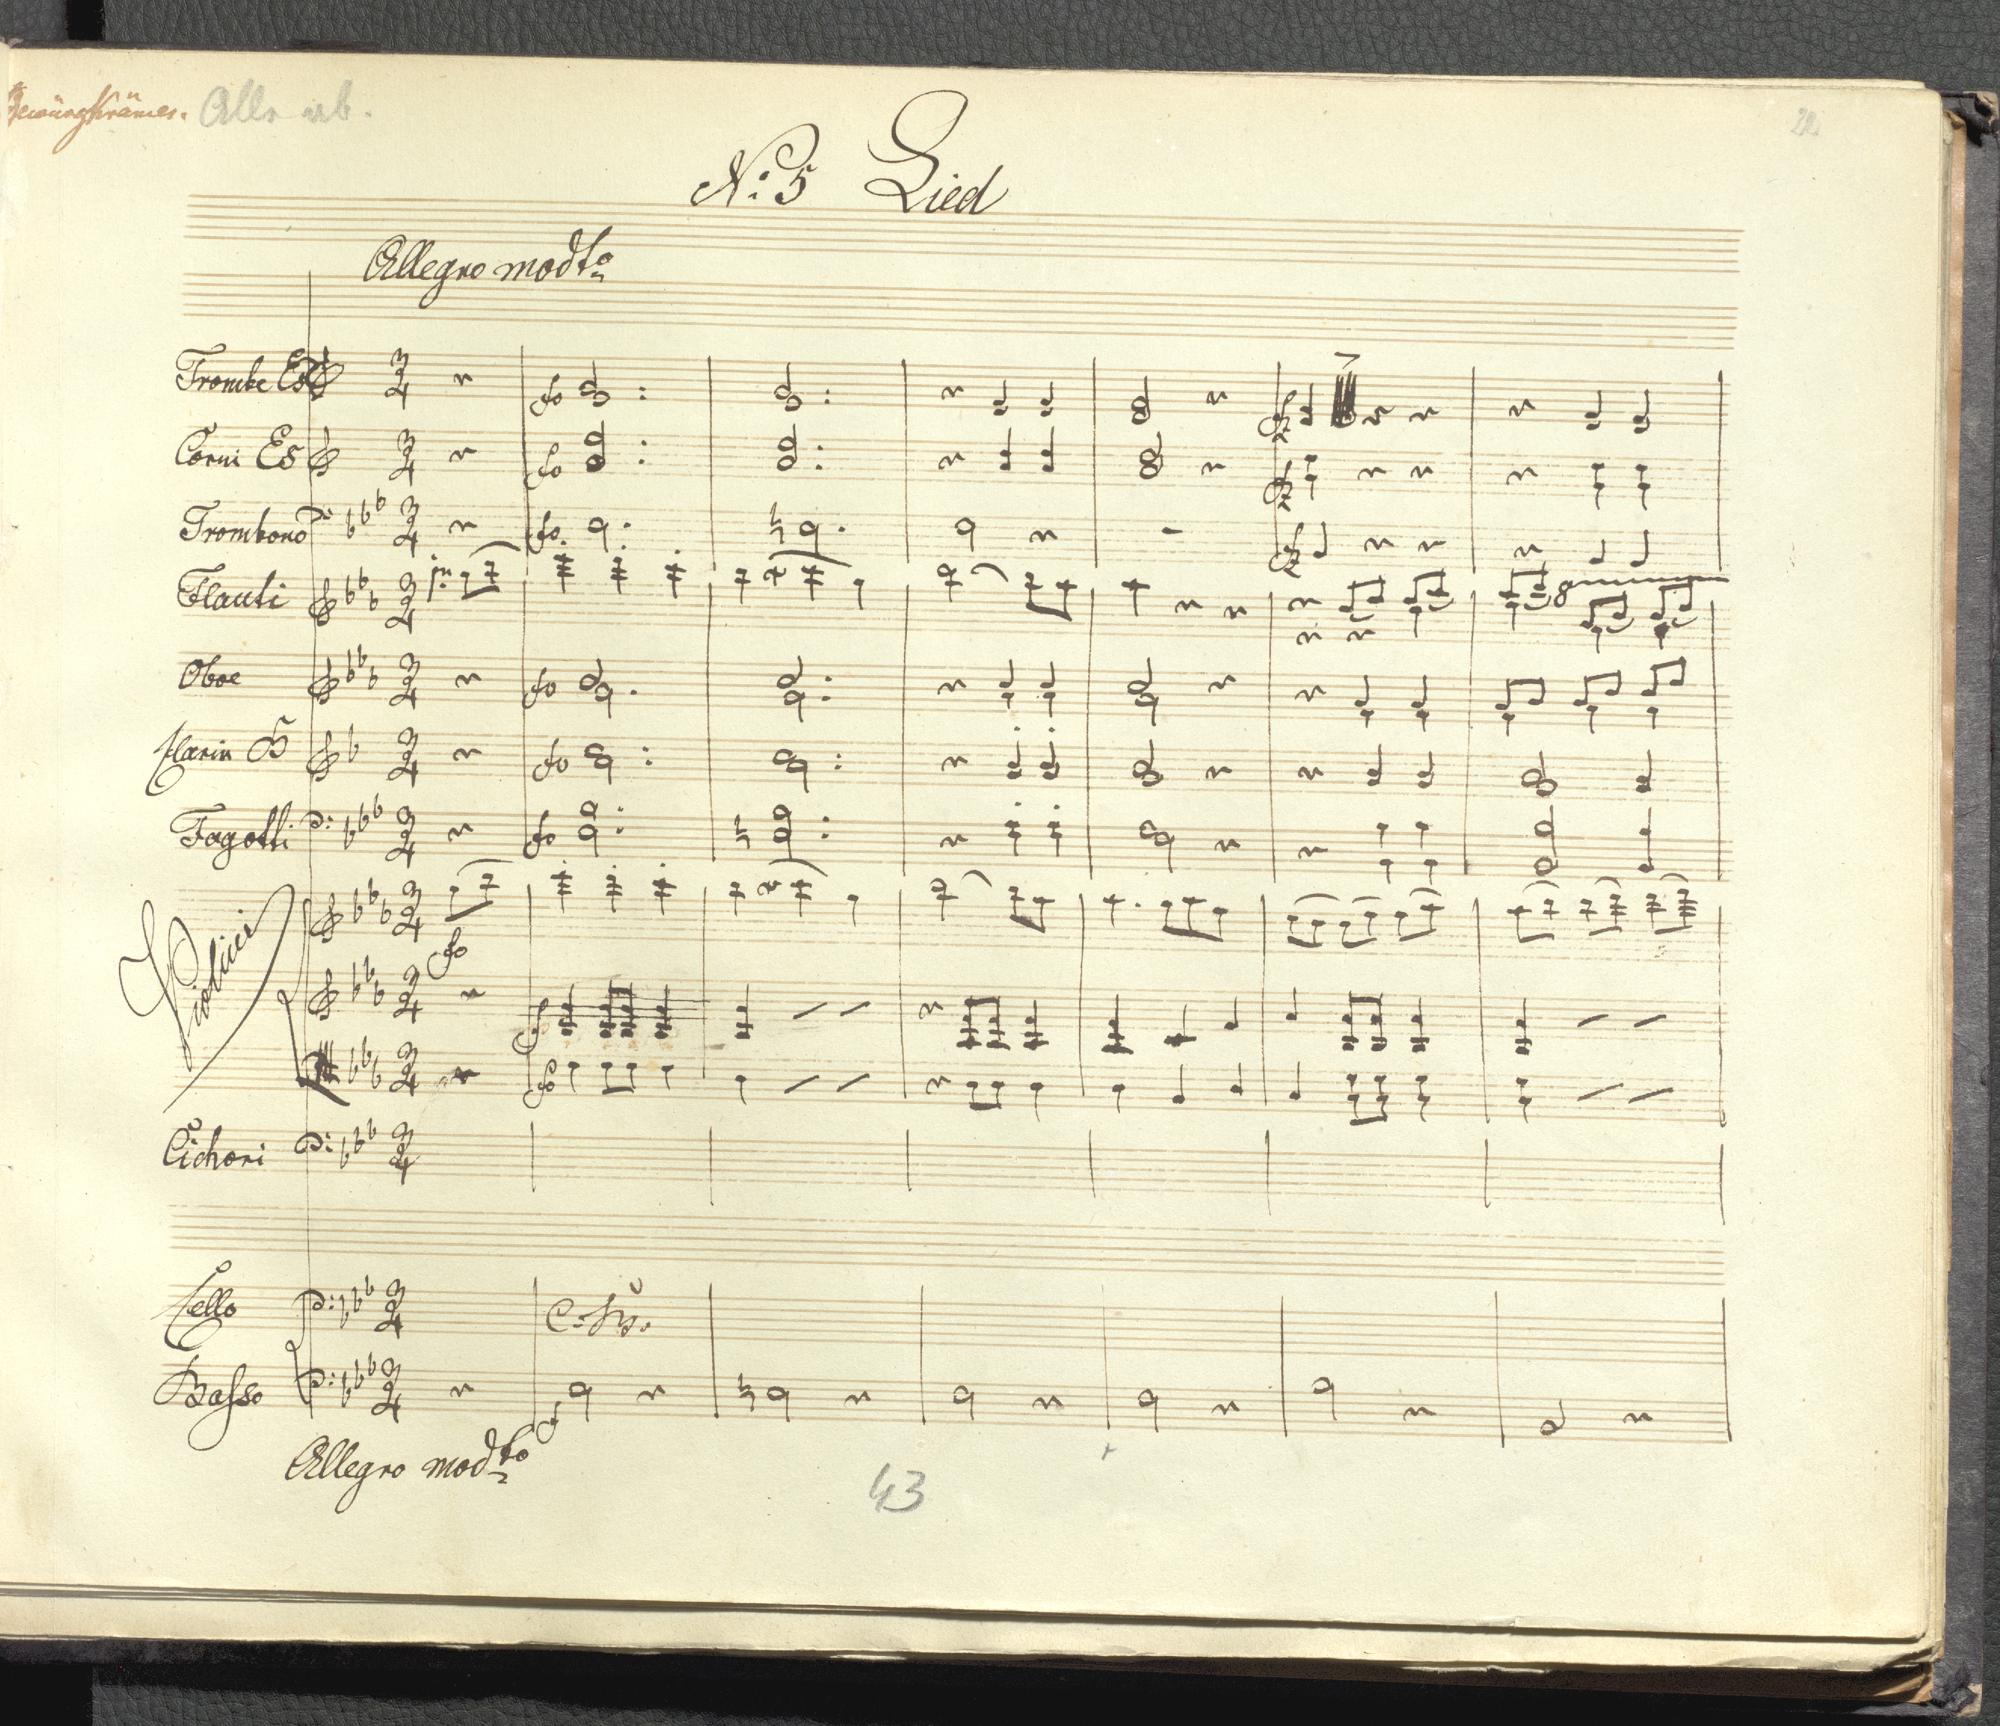 Gewürzkrämer. Alle ab.
22
No: 5 Lied
Allegro modto
Trombe Es
Corni Es
Trombono
Flauti
Oboe
Clarin B
Fagotti
Violini
Cichori
Cello
C. B.
Basso
Allegro modto
43